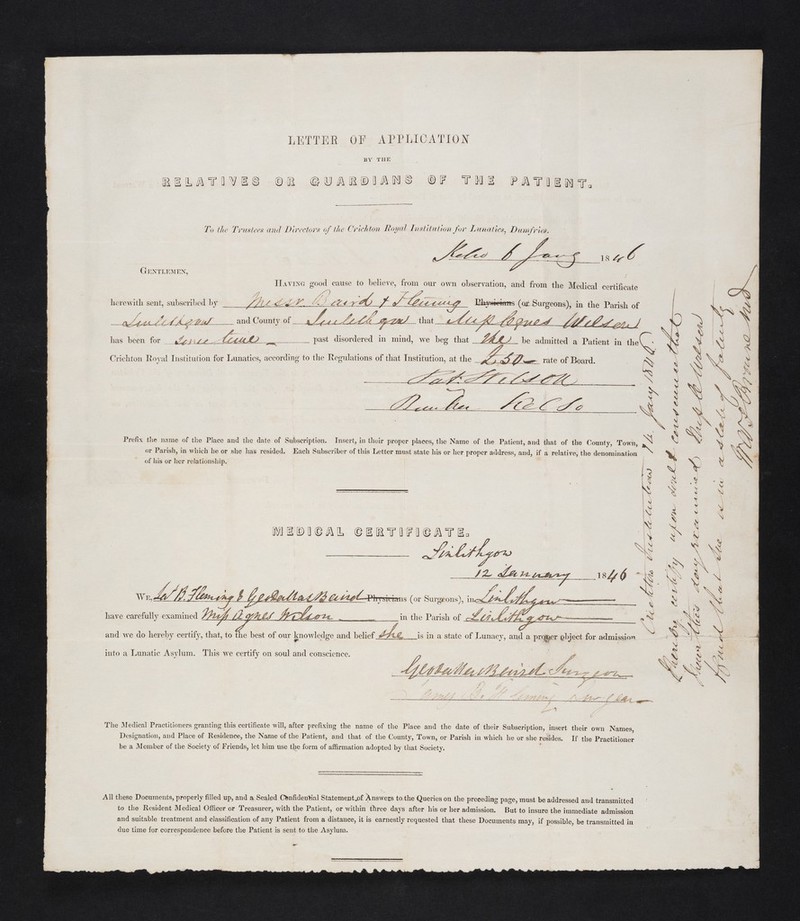 LETTER OF APPLICATION
BY THE
RELATIVES OR GUARDIANS OF THE PATIENT.
To the Trustees and Directors of the Crichton Royal Institution for Lunatics, Dumfries.
Kelso 6 Jany 1846
GENTLEMEN,
HAVING good cause to believe, from our own observation, and from the Medical certificate
herewith sent, subscribed by Messr. Baird & Fleming Physicians (or Surgeons), in the Parish of
Linlithgow and County of Linlithgow that Miss Agnes Wilson
has been for some time past disordered in mind, we beg that she be admitted a Patient in the
Crichton Royal Institution for Lunatics, according to the Regulations of that Institution, at the £50 rate of Board.
Pat. Wilson
Kelso
Prefix the name of the Place and the date of Subscription. Insert, in their proper places, the Name of the Patient, and that of the County, Town,
or Parish, in which he or she has resided. Each Subscriber of this Letter must state his or her proper address, and, if a relative, the denomination
of his or her relationship.
MEDICAL CERTIFICATE.
Linlithgow
12 January 1846
WE, Jas B. Fleming & Geo Dallas Baird Physicians (or Surgeons), in Linlithgow
have carefully examined Miss Agnes Wilson in the Parish of Linlithgow
and we do hereby certify, that, to the best of our knowledge and belief she is in a state of Lunacy, and a proper object for admission
into a Lunatic Asylum. This we certify on soul and conscience.
Geo Dallas Baird Surgeon
James B. Fleming Surgeon
The Medical Practitioners granting this certificate will, after prefixing the name of the Place and the date of their Subscription, insert their own Names,
Designation, and Place of Residence, the Name of the Patient, and that of the County, Town, or Parish in which he or she resides. If the Practitioner
be a Member of the Society of Friends, let him use the form of affirmation adopted by that Society.
All these Documents, properly filled up, and a Sealed Confidential Statement of Answers to the Queries on the preceding page, must be addressed and transmitted
to the Resident Medical Officer or Treasurer, with the Patient, or within three days after his or her admission. But to insure the immediate admission
and suitable treatment and classification of any Patient from a distance, it is earnestly requested that these Documents may, if possible, be transmitted in
due time for correspondence before the Patient is sent to the Asylum.
Crichton Institution Jany 1846.
I hereby certify upon soul & conscience that
I have this day examined Miss A Wilson
& find that she is in a state of fatuity
W.A.F. Browne M.D